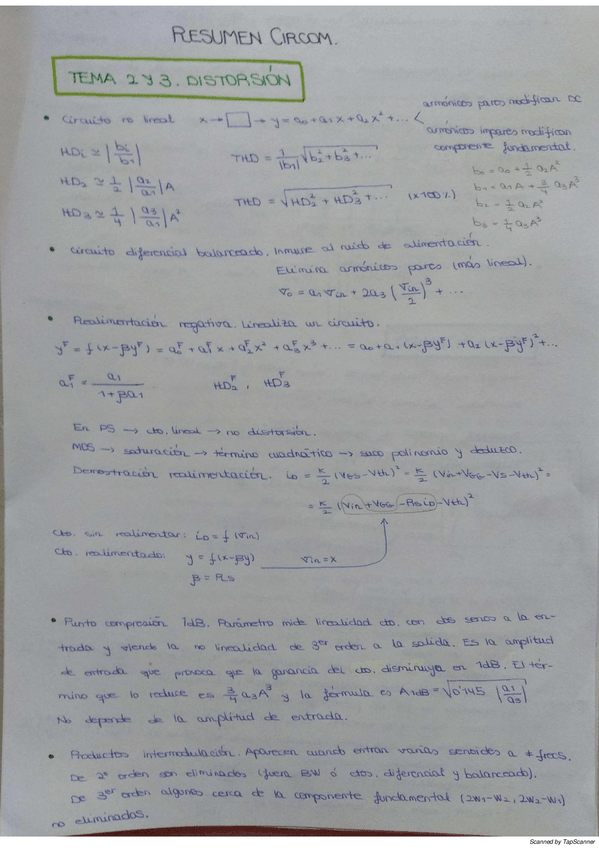 RESUMEN CIRCOM.
TEMA 2 Y 3. DISTORSIÓN
• Circuito no lineal x → □ → y = a₀ + a₁x + a₂x² + ... < armónicos pares modifican DC
armónicos impares modifican componente fundamental.
HDi ≃ |bi/b1| THD = 1/|b1| √(b₂² + b₃² + ...)
HD₂ ≃ 1/2 |a₂/a₁| A THD = √(HD₂² + HD₃² + ...) (x100%)
HD₃ ≃ 1/4 |a₃/a₁| A²
b₀ = a₀ + 1/2 a₂A²
b₁ = a₁A + 3/4 a₃A³
b₂ = 1/2 a₂A²
b₃ = 1/4 a₃A³
• Circuito diferencial balanceado. Inmune al ruido de alimentación.
Elimina armónicos pares (más lineal).
v₀ = a₁vin + 2a₃ (vin/2)³ + ...
• Realimentación negativa. Linealiza un circuito.
yF = f(x-βyF) = a₀F + a₁F x + a₂F x² + a₃F x³ + ... = a₀ + a₁(x-βyF) + a₂(x-βyF)² + ...
a₁F = a₁/(1+βa₁) HD₂F, HD₃F
En PS → cto. lineal → no distorsión.
MOS → saturación → término cuadrático → saco polinomio y deduzco.
Demostración realimentación. iD = K/2 (VGS-Vth)² = K/2 (Vin+VGG-VS-Vth)² =
= K/2 (Vin+VGG-RSiD-Vth)²
Cto. sin realimentar: iD = f(vin)
Cto. realimentado: y = f(x-βy) vin = x
β = RS
• Punto compresión 1dB. Parámetro mide linealidad cto. con dos senos a la en-
trada y viendo la no linealidad de 3er orden a la salida. Es la amplitud
de entrada que provoca que la ganancia del cto. disminuya en 1dB. El tér-
mino que lo reduce es 3/4 a₃A³ y la fórmula es A1dB = √(0'145 |a₁/a₃|)
No depende de la amplitud de entrada.
• Productos intermodulación. Aparecen cuando entran varias senoides a ≠ frecs.
De 2º orden son eliminados (fuera BW ó ctos. diferencial y balanceado).
De 3er orden algunos cerca de la componente fundamental (2w₁-w₂, 2w₂-w₁)
no eliminados.
Scanned by TapScanner